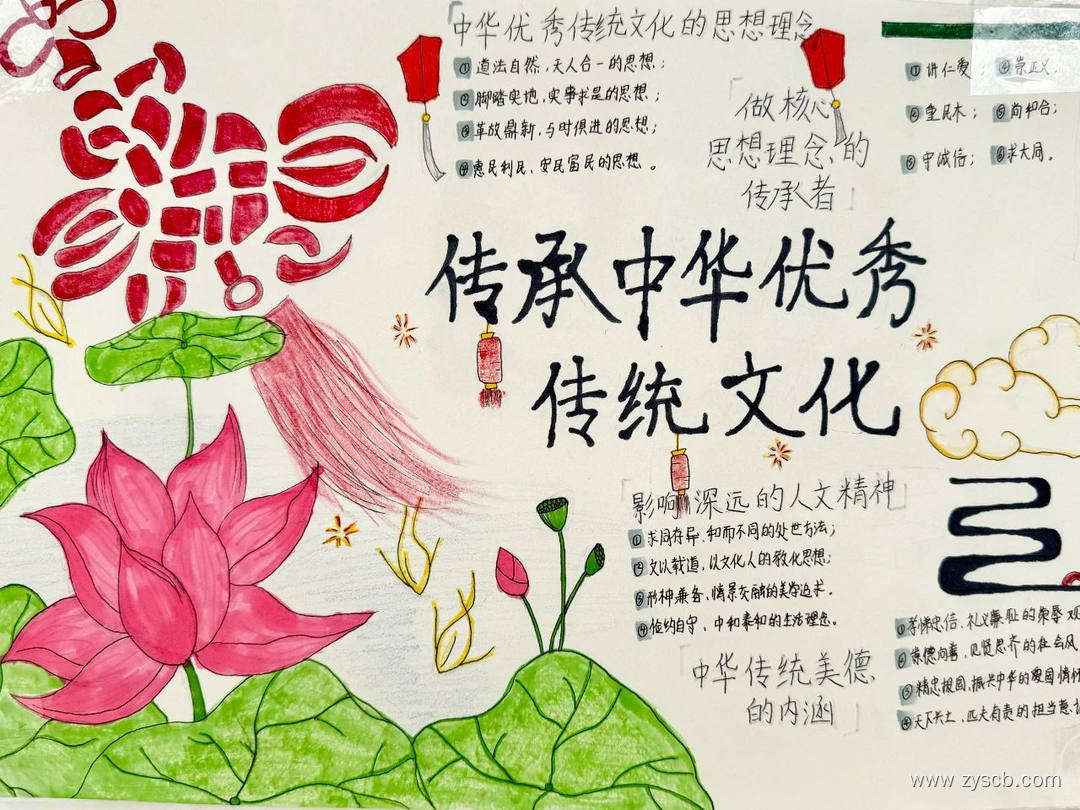 「中华优秀传统文化的思想理念
①道法自然,天人合一的思想;
②脚踏实地,实事求是的思想;
③革故鼎新,与时俱进的思想;
④惠民利民、安民富民的思想。
「做核心
思想理念的
传承者」
①讲仁爱; ④崇正义
②重民本; ⑤尚和合;
③守诚信; ⑥求大同。
传承中华优秀
传统文化
「影响深远的人文精神」
①求同存异、和而不同的处世方法;
②文以载道,以文化人的教化思想;
③形神兼备、情景交融的美学追求.
④俭约自守、中和泰和的生活理念。
「中华传统美德
的内涵」
①孝悌忠信、礼义廉耻的荣辱观
②崇德向善,见贤思齐的社会风
③精忠报国,振兴中华的爱国情怀
④天下兴亡,匹夫有责的担当意识
www.zyscb.com